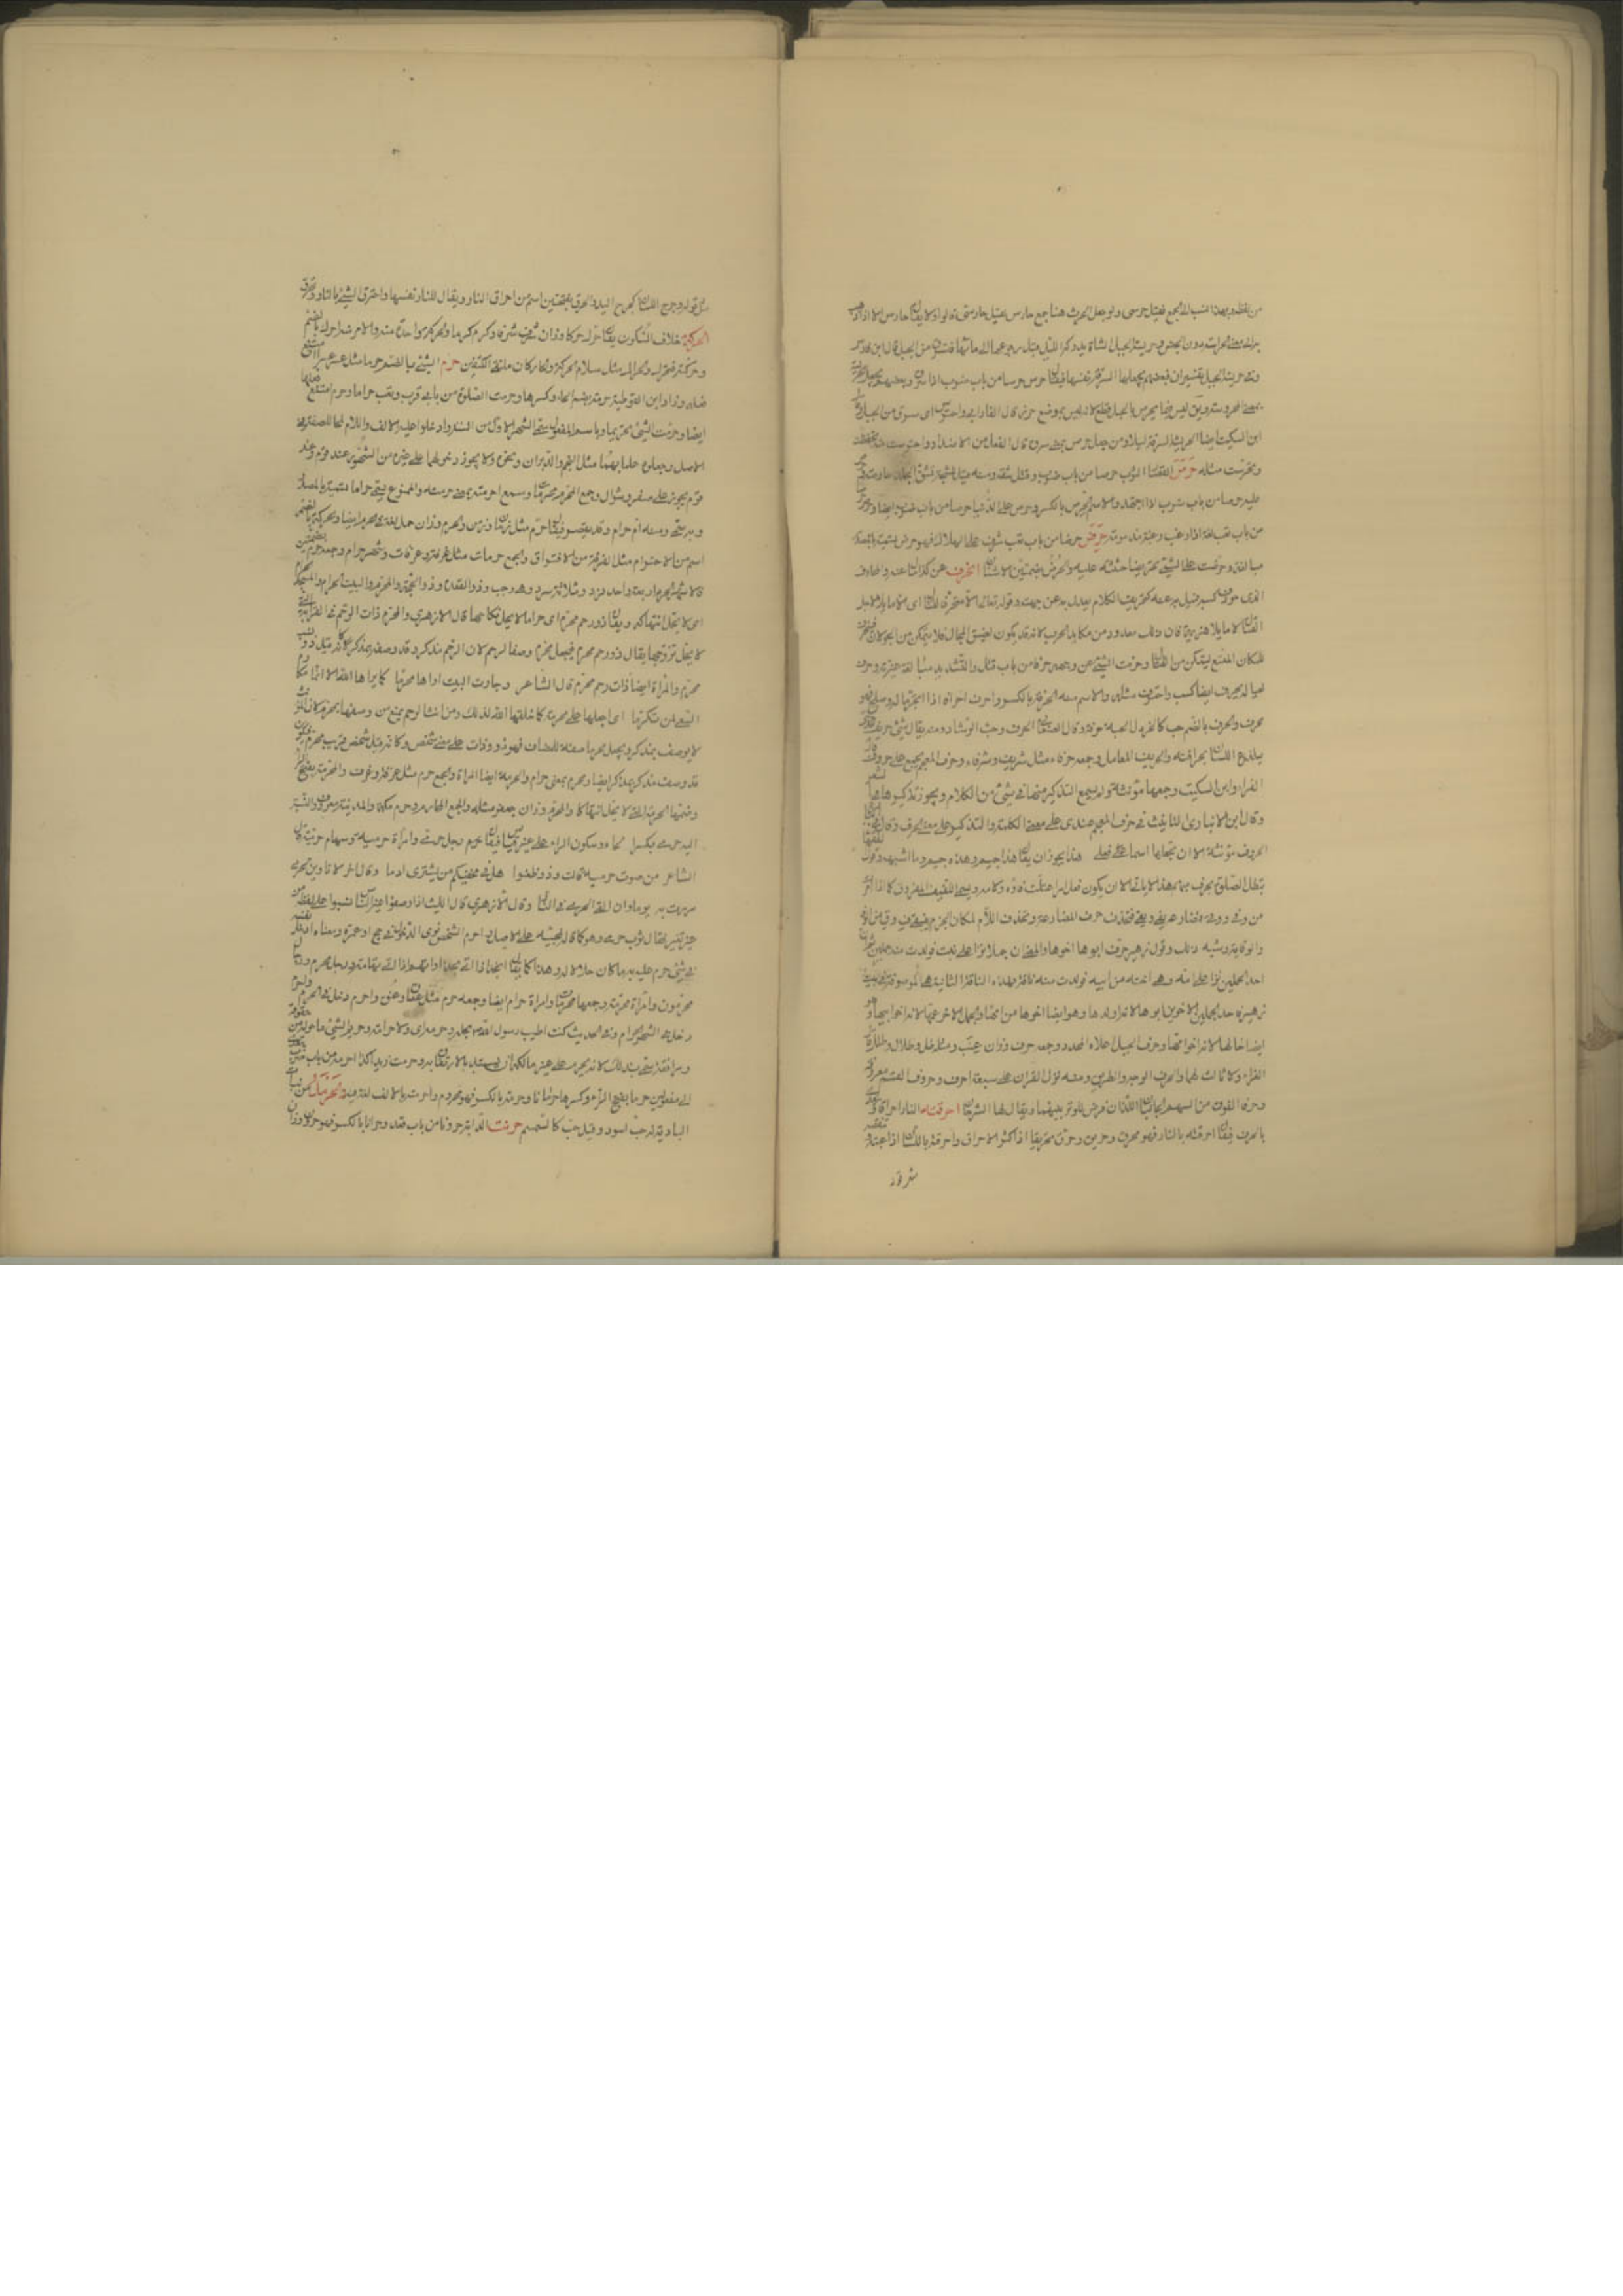 من لفظه ولهذا نسب الى الجمع فقيل حرسي ولو جعل الحرس هنا جمع حارس لقيل حارسي قالوا ولا يقال حارسي الا اذا ذهب
به الى معنى الحراسة دون الجنس وحريسة الجبل الشاة يدركها الليل قبل رجوعها الى مأواها فتسرق من الجبل قال ابن فارس
وفي حريسة الجبل تفسيران فبعضهم يجعلها السرقة نفسها فيقال حرس حرسا من باب ضرب اذا سرق وبعضهم يجعلها
بمعنى المحروسة ويقول ليس فيما يحرس بالجبل قطع لانه ليس بموضع حرز قال الفارابي واحترس اى سرق من الجبل وقال
ابن السكيت ايضا الحريسة السرقة ليلا ومن جعل حرس بمعنى سرق قال الفعل من الاضداد واحترست منه تحفظت
وتحرست مثله حرص القصار الثوب حرصا من باب ضرب وقتل شقه ومنه قيل للشجة تشق الجلد حارصة وحرص
عليه حرصا من باب ضرب اذا اجتهد والاسم الحرص بالكسر وحرص على الدنيا حرصا من باب ضرب ايضا وحرص
من باب تعب لغة اذا رغب رغبة مذمومة حرض حرضا من باب تعب اشرف على الهلاك فهو حرض تسمية بالمصدر
مبالغة وحرضت على الشيء تحريضا حثثته عليه والحرض بضمتين الاشنان انحرف عن كذا مال عنه والمحارف
الذى حورف كسبه فميل به عنه كتحريف الكلام يعدل به عن جهته وقوله تعالى الا متحرفا لقتال اى الا مائلا لاجل
القتال لا مائلا هزيمة فان ذلك معدود من مكايد الحرب لانه قد يكون لضيق المجال فلا يتمكن من الجولان فينحرف
للمكان المتسع ليتمكن من القتال وحرفت الشيء عن وجهه حرفا من باب قتل والتشديد مبالغة غيرته وحرف
لعياله يحرف ايضا كسب واحترف مثله والاسم منه الحرفة بالكسر واحرف احرافا اذا نما ماله وصلح فهو
محرف والحرف بالضم حب كالخردل الحبة حرفة وقال الصغاني الحرف وحب الرشاد ومنه يقال شيء حريف للذى
يلذع اللسان بحرافته والحريف المعامل وجمعه حرفاء مثل شريف وشرفاء وحرف المعجم يجمع على حروف قال
الفراء وابن السكيت وجميعها مؤنثة ولم يسمع التذكير منها فى شيء من الكلام ويجوز تذكيرها فى الشعر
وقال ابن الانبارى التأنيث فى حروف المعجم عندى على معنى الكلمة والتذكير على معنى الحرف وقال فى البارع
الحروف مؤنثة الا ان تجعلها اسماء فعلى هذا يجوز ان يقال هذا جيم وهذه جيم وما اشبهه وقول الفقهاء
تبطل الصلوة بحرف مفهم هذا لا يتأتى الا ان يكون فعل امر اعتلت فاؤه ولامه ويسمى اللفيف المفروق كما اذا امر
من وفى ووقى فمضارعه يفى ويقى فتحذف حرف المضارعة وتحذف اللام لمكان الجزم فيبقى ف وق من الوفاء
والوقاية وشبه ذلك وقول زهير حرف ابوها اخوها والمعنى ان جملا نزا على بنت فولدت منه جملين ثم ان
احد الجملين نزا على امه وهى اخته من ابيه فولدت منه ناقة فهذه الناقة الثانية هى الموصوفة فى بيت
زهير فاحد الجملين الاخوين ابوها لانها ولدها وهو ايضا اخوها من امها والجمل الاخر عمها لانه اخو ابيها وهو
ايضا خالها لانه اخو امها وحرف الجبل اعلاه المحدد وجمعه حرف وزان عنب ومثله طل وطلل قال
الفراء ولا ثالث لهما والحرف الوجه والطريق ومنه نزل القران على سبعة احرف وحروف القسم معروفة
وحرف الفوق من السهم الجانبان اللذان فرض للوتر بينهما ويقال لهما الشرخان احرقته النار احراقا ويتعدى
بالحرف فيقال احرقته بالنار فهو محرق وحريق وحرق تحريقا اذا اكثر الاحراق واحرقته باللسان اذا عبته وتنقصته
مثل قوله وجرح اللسان كجرح اليد والحرق بفتحتين اسم من احراق النار ويقال للنار نفسها واحترق الشيء بالنار وتحرق
الحركة خلاف السكون يقال حرك حركا وزان شرف شرفا وكرم كرما والحركة واحدة منه والامر منه احرك بالضم
وحركته فتحرك والحراك مثل سلام الحركة والحارك ملتقى الكتفين حرم الشيء بالضم حرما مثل عسر عسرا امتنع
فعله وزاد ابن القوطية حرمة بضم الحاء وكسرها وحرمت الصلوة من بابى قرب وتعب حراما وحرما امتنع فعلها
ايضا وحرمت الشيء تحريما وباسم المفعول سمى الشهر الاول من السنة وادخلوا عليه الالف واللام لمحا للصفة فى
الاصل وجعلوه علما بهما مثل النجم والدبران ونحوه ولا يجوز دخولهما على غيره من الشهور عند قوم وعند
قوم يجوز على صفر وشوال وجمع المحرم محرمات وسمع احرمته بمعنى حرمته والممنوع يسمى حراما تسمية بالمصدر
وبه سمى ومنه ام حرام وقد يقصر فيقال حرم مثل زمان وزمن والحرم وزان حمل لغة فى الحرام ايضا والحرمة بالضم
اسم من الاحترام مثل الفرقة من الافتراق والجمع حرمات مثل غرفة وغرفات وشهر حرام وجمعه حرم بضمتين
فالاشهر الحرم اربعة واحد فرد وثلاثة سرد وهى رجب وذو القعدة وذو الحجة والمحرم والبيت الحرام والمسجد الحرام
اى لا يحل انتهاكه ويقال ذو رحم محرم اى حرام لا يحل نكاحها قال الازهري والمحرم ذات الرحم فى القرابة التى
لا يحل تزوجها يقال ذو رحم محرم فيجعل محرم وصفا لرحم لان الرحم مذكر وقد وصفه بمذكر كانه قيل ذو نسب
محرم والمرأة ايضا ذات رحم محرم قال الشاعر وجارة البيت اراها محرما كما براها الله الا انما مكارم
السعى لمن تكرما اى اجعلها على محرمة كما خلقها الله كذلك ومن انث الرحم يمنع من وصفها بمحرم لان المؤنث
لا يوصف بمذكر ويجعل محرما صفة للمضاف فهو ذو وذات على معنى شخص وكانه قيل شخص قريب محرم فيكون
قد وصف مذكر بمذكر ايضا ومحرم بمعنى حرام والحرمة ايضا المرأة والجمع حرم مثل غرفة وغرف والمحرمة بفتح الراء
وضمها الحرمة التى لا يحل انتهاكها والمحرم وزان جعفر مثله والجمع المحارم وحرم مكة والمدينة معروف والنسبة
اليه حرمى بكسر الحاء وسكون الراء على غير قياس فيقال رجل حرمى وامرأة حرمية وسهام حرمية قال
الشاعر من صوت حرمية قالت وقد ظعنوا هل فى مخفيكم من يشترى ادما وقال اخر لا تأوين لحرمى
مررت به يوما وان القى الحرمى فى النار وقال الازهري قال الليث اذا وصفوا غير الناس نسبوا على لفظه من
غير تغيير فقالوا ثوب حرمى وهو كما قال لمجيئه على الاصل واحرم الشخص نوى الدخول فى حج او عمرة ومعناه ادخل نفسه
فى شيء حرم عليه به ما كان حلالا له وهذا كما يقال انجد اذا اتى نجدا واتهم اذا اتى تهامة ورجل محرم وجمعه
محرمون وامرأة محرمة وجمعها محرمات وامرأة حرام ايضا وجمعه حرم مثل عناق وعنق واحرم دخل فى الحرم واحرم
دخل فى الشهر الحرام وفى الحديث كنت اطيب رسول الله لحله وحرمه اى ولاحرامه وحريم الشيء ما حوله من حقوقه
ومرافقه سمى بذلك لانه يحرم على غير مالكه ان يستبد بالارتفاق به وحرمت زيدا كذا احرمه من باب ضرب يتعدى
الى مفعولين حرما بفتح الراء وكسرها وحرمانا وحرمة بالكسر فهو محروم واحرمته بالالف لغة فيه الحرمل من نبات
البادية له حب اسود وقيل حب كالسمسم حرنت الدابة حرونا من باب قعد وحرانا بالكسر فهو حرون وزان